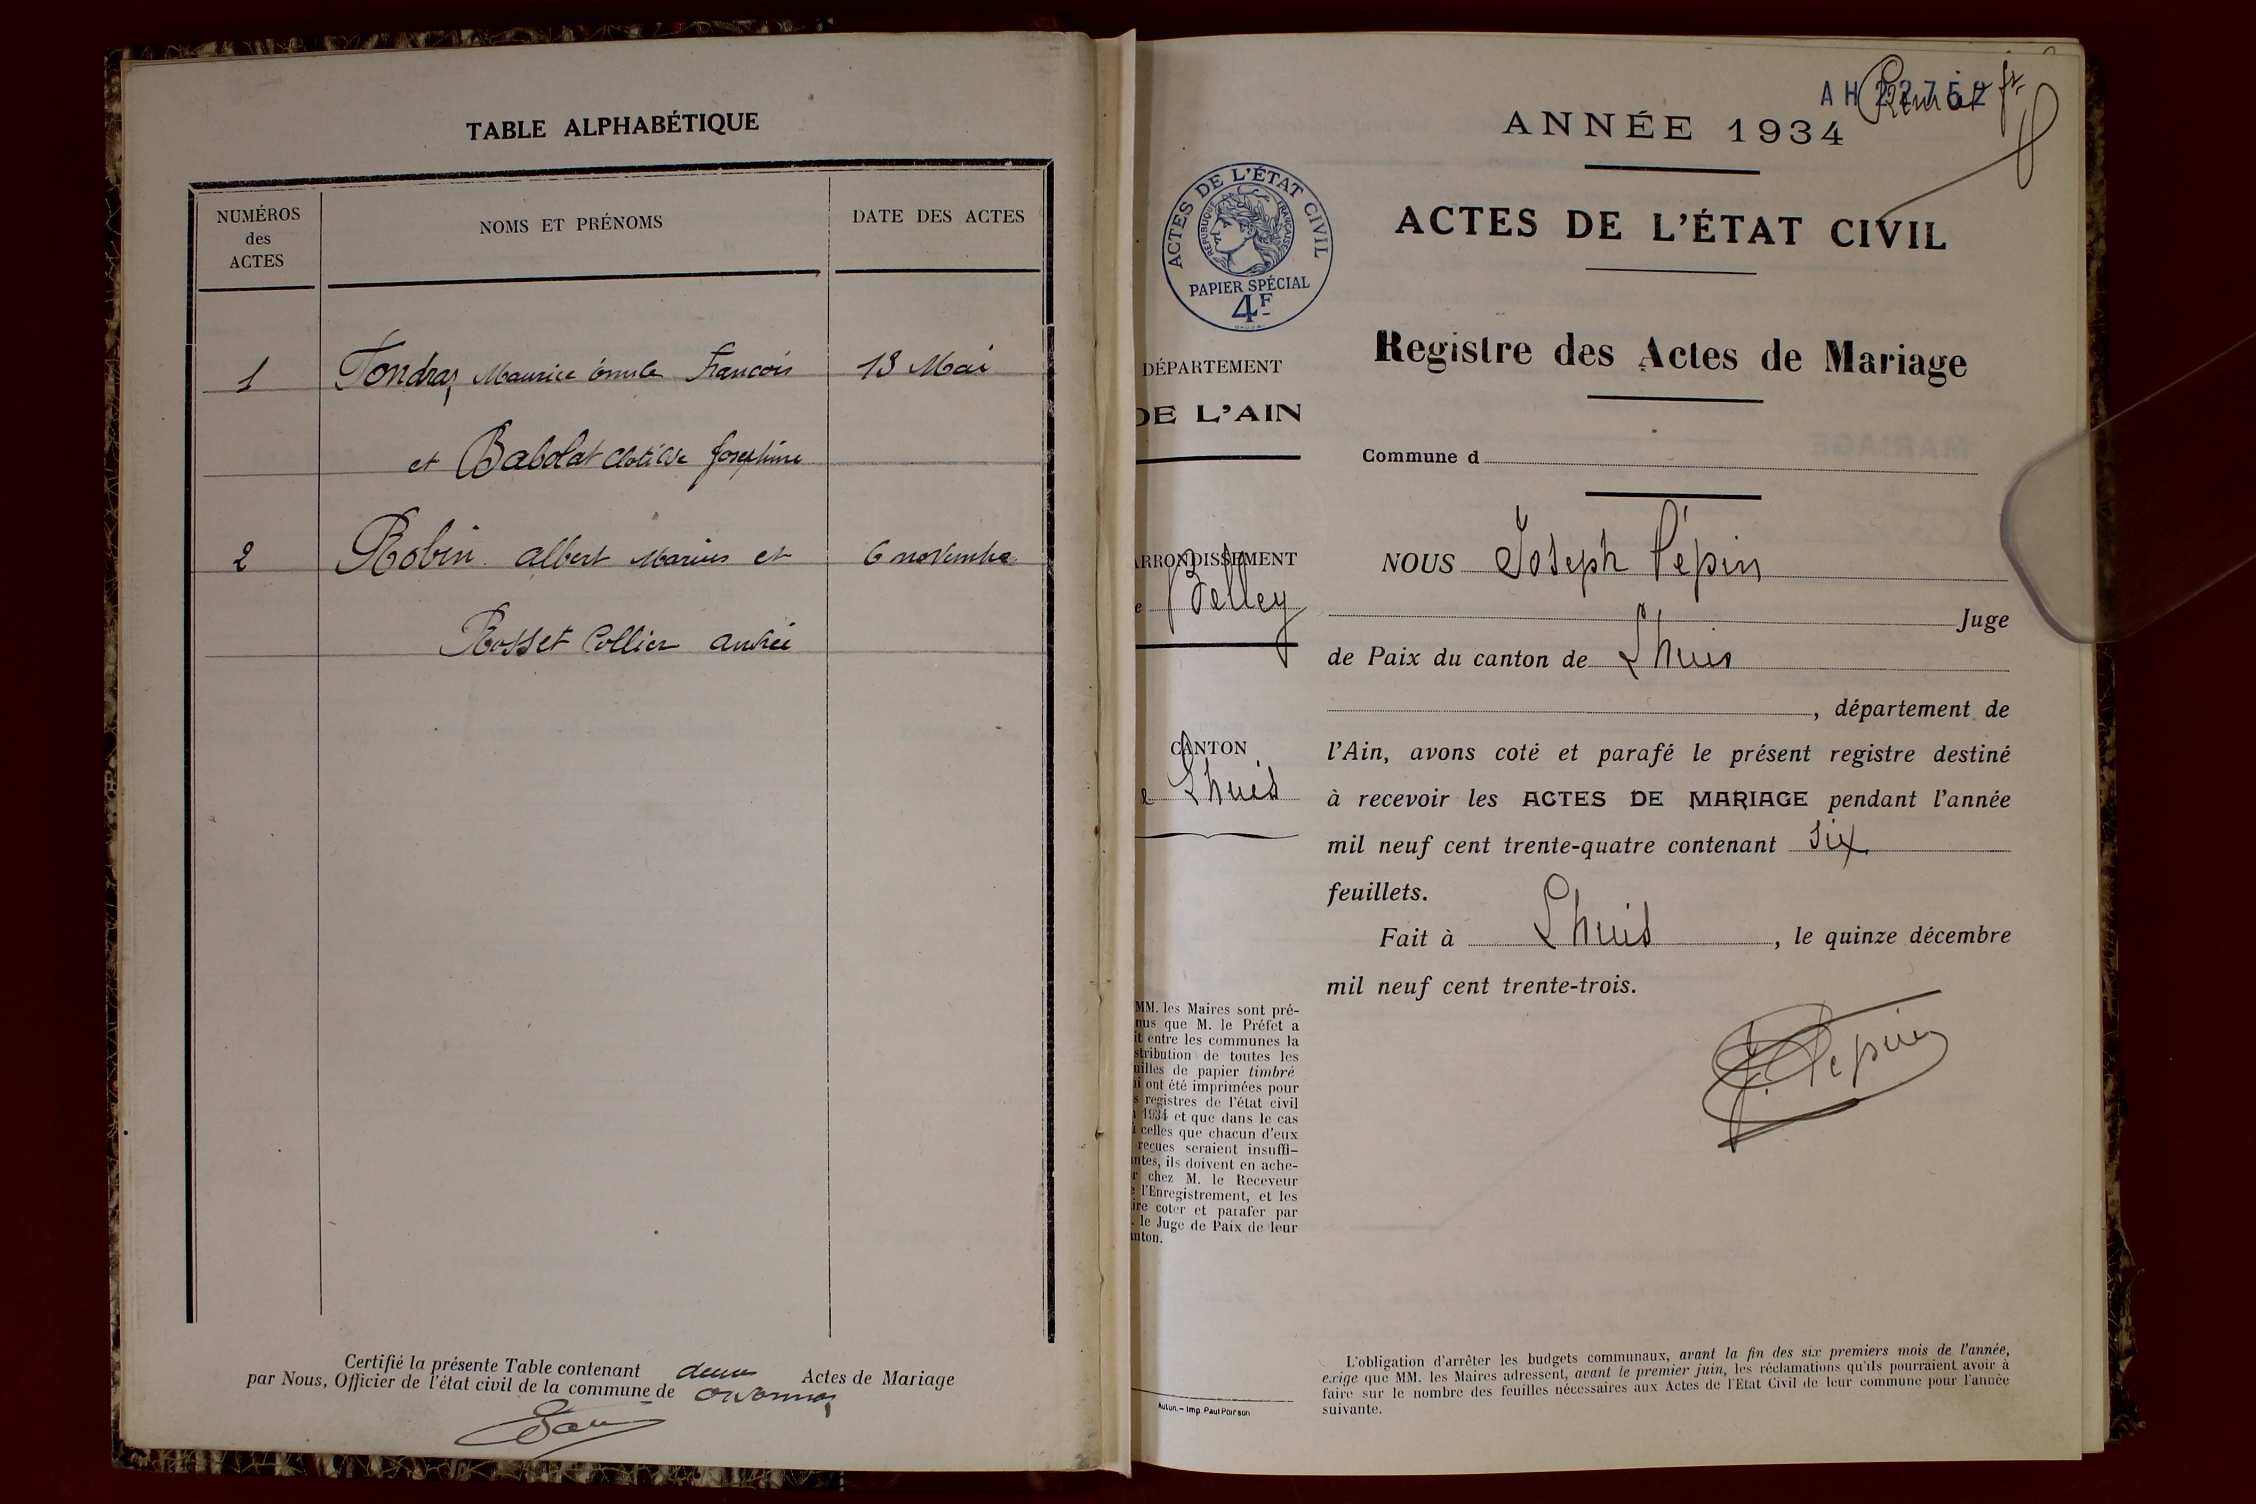 TABLE ALPHABÉTIQUE
NUMÉROS
des
ACTES
NOMS ET PRÉNOMS
DATE DES ACTES
1 Tondraz Maurice émile François 13 Mai
et Babolat Clotilde Joséphine
2 Robin albert Marius et 6 novembre
Rosset Collier andrée
Certifié la présente Table contenant deux Actes de Mariage
par Nous, Officier de l'état civil de la commune de
AH 22752
Premier ft
ANNÉE 1934
ACTES DE L'ÉTAT CIVIL
RÉPUBLIQUE FRANÇAISE
PAPIER SPÉCIAL
4F
ACTES DE L'ÉTAT CIVIL
Registre des Actes de Mariage
DÉPARTEMENT
DE L'AIN
Commune d
ARRONDISSEMENT
e Belley
CANTON
e Lhuis
NOUS Joseph Pépin
Juge
de Paix du canton de Lhuis
, département de
l'Ain, avons coté et parafé le présent registre destiné
à recevoir les ACTES DE MARIAGE pendant l'année
mil neuf cent trente-quatre contenant six
feuillets.
Fait à Lhuis, le quinze décembre
mil neuf cent trente-trois.
J. Pépin
MM. les Maires sont pré-
nus que M. le Préfet a
it entre les communes la
stribution de toutes les
uilles de papier timbré
ui ont été imprimées pour
s registres de l'état civil
n 1934 et que dans le cas
ù celles que chacun d'eux
reçues seraient insuffi-
ntes, ils doivent en ache-
r chez M. le Receveur
e l'Enregistrement, et les
ire coter et parafer par
. le Juge de Paix de leur
nton.
Autun. – Imp. Paul Poirson
L'obligation d'arrêter les budgets communaux, avant la fin des six premiers mois de l'année,
exige que MM. les Maires adressent, avant le premier juin, les réclamations qu'ils pourraient avoir à
faire sur le nombre des feuilles nécessaires aux Actes de l'Etat Civil de leur commune pour l'année
suivante.